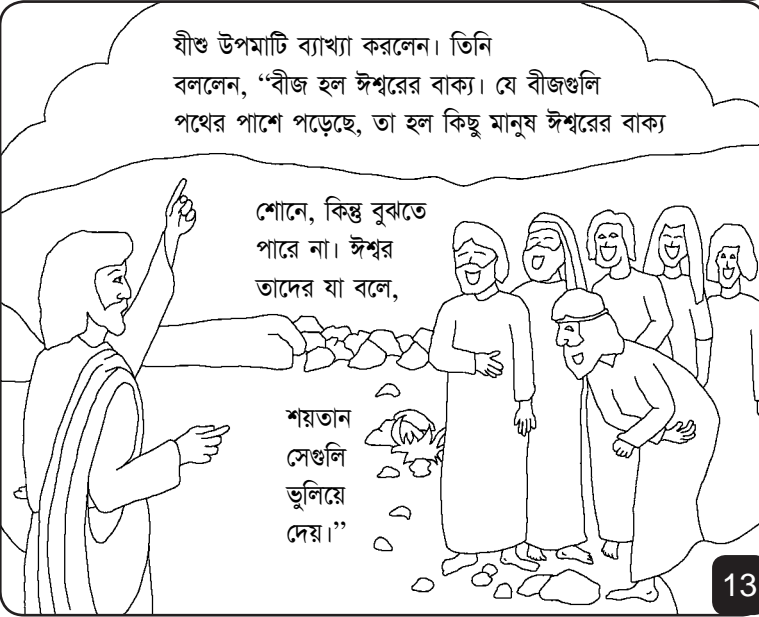 যীশু উপমাটি ব্যাখ্যা করলেন। তিনি
বললেন, “বীজ হল ঈশ্বরের বাক্য। যে বীজগুলি
পথের পাশে পড়েছে, তা হল কিছু মানুষ ঈশ্বরের বাক্য
শোনে, কিন্তু বুঝতে
পারে না। ঈশ্বর
তাদের যা বলে,
শয়তান
সেগুলি
ভুলিয়ে
দেয়।”
13